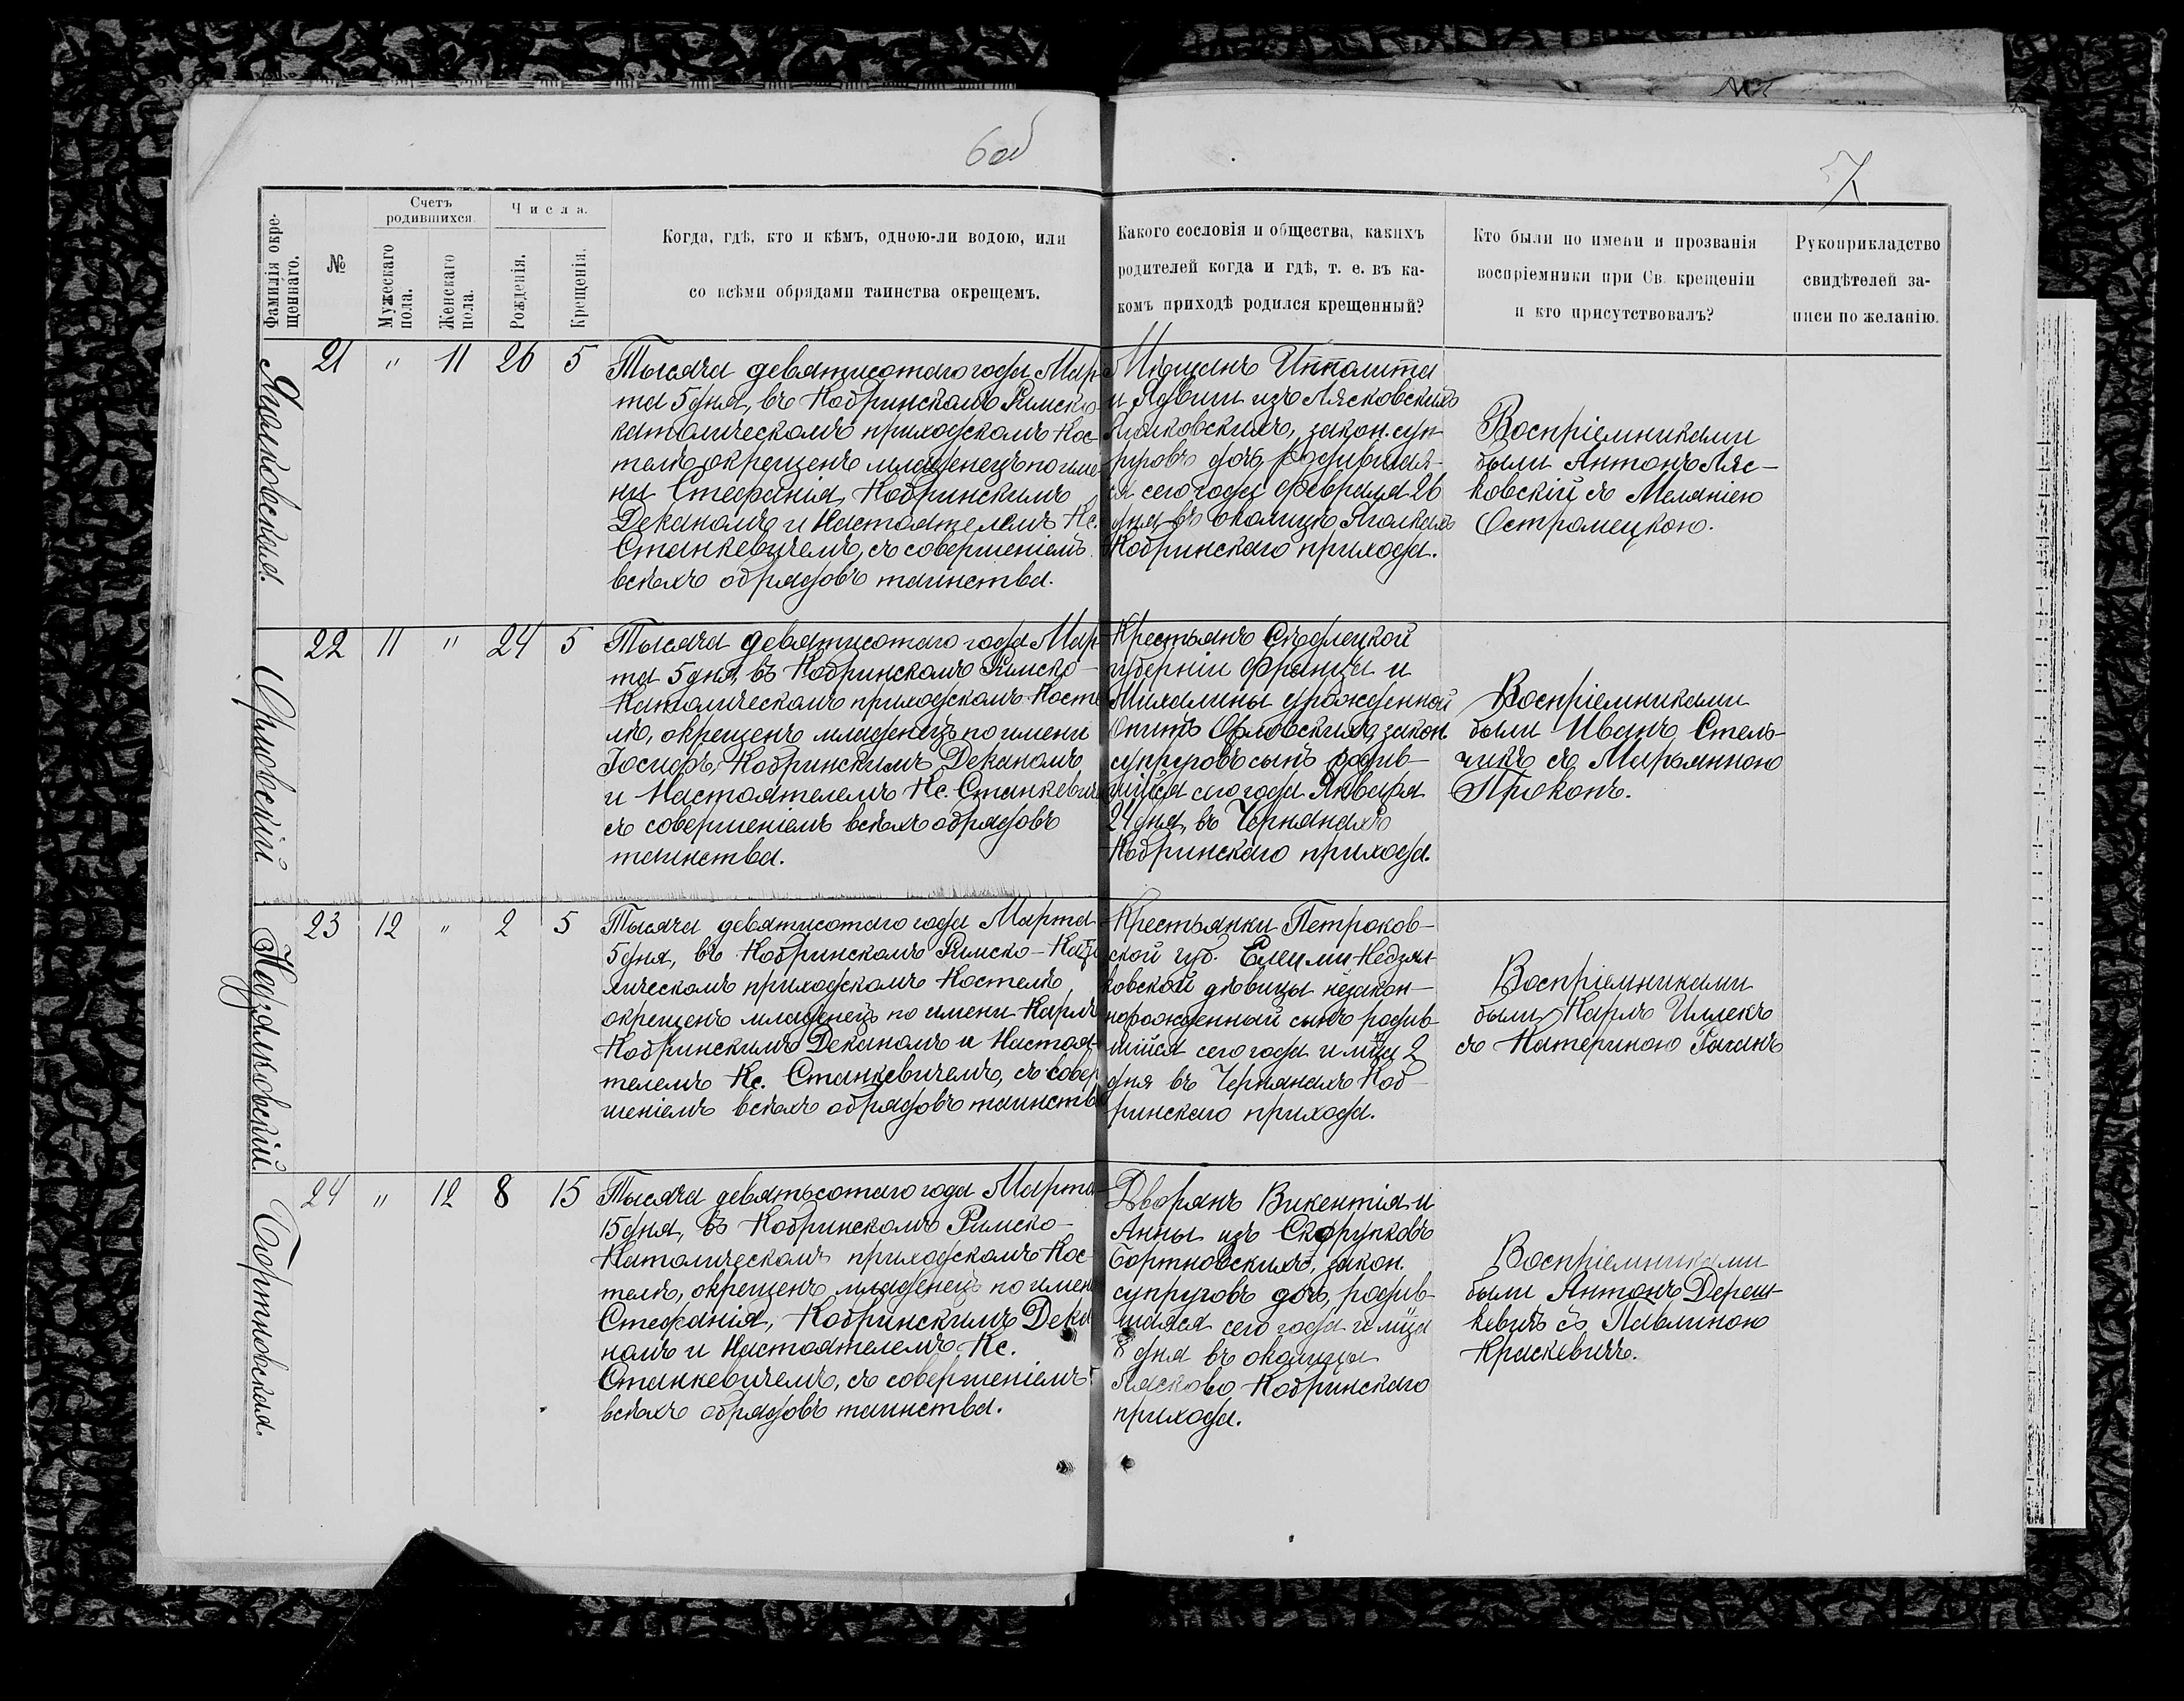 6об
7
Фамилія окре-
щеннаго.
№
Счетъ
родившихся.
Мужескаго
пола.
Женскаго
пола.
Числа.
Рожденія.
Крещенія.
Когда, гдѣ, кто и кѣмъ, одною-ли водою, или
со всѣми обрядами таинства окрещемъ.
Какого сословія и общества, какихъ
родителей когда и гдѣ, т. е. въ ка-
комъ приходѣ родился крещенный?
Кто были по имени и прозванія
воспріемники при Св. крещеніи
и кто присутствовалъ?
Рукоприкладство
свидѣтелей за-
писи по желанію.
Яголковская.
21 " 11 26 5
Тысяча девятисотаго года Мар
та 5 дня, въ Кобринскомъ Римско-
католическомъ приходскомъ Кос-
телѣ окрещенъ младенецъ по име
ни Стефанія, Кобринскимъ
Деканомъ и Настоятелемъ Кс.
Станкевичемъ, съ совершеніемъ
всѣхъ обрядовъ таинства.
Мѣщанъ Ипполита
и Ядвиги изъ Лясковскихъ
Яголковскихъ, закон. суп-
руговъ дочь, родившая-
ся сего года Февраля 26
дня въ околицѣ Яголкахъ
Кобринскаго прихода.
Воспріемниками
были Антонъ Ляс-
ковскій съ Меланіею
Остромецкою.
Орловскій
22 11 " 24 5
Тысяча девятисотаго года Мар
та 5 дня, въ Кобринскомъ Римско-
Католическомъ приходскомъ Косте
лѣ, окрещенъ младенецъ по имени
Іосифъ, Кобринскимъ Деканомъ
и Настоятелемъ Кс. Станкевичемъ
съ совершеніемъ всѣхъ обрядовъ
таинства.
Крестьянъ Сѣдлецкой
губерніи Францa и
Михалины урожденной
Орловскихъ закон.
супруговъ сынъ родив-
шійся сего года Января
24 дня, въ Чернянахъ
Кобринскаго прихода.
Воспріемниками
были Иванъ Стель-
чикъ съ Марьянною
Прокопъ.
Недзялковскій
23 12 " 2 5
Тысяча девятисотаго года Марта
5 дня, въ Кобринскомъ Римско-Като
лическомъ приходскомъ Костелѣ
окрещенъ младенецъ по имени Карлъ
Кобринскимъ Деканомъ и Настоя-
телемъ Кс. Станкевичемъ, съ совер
шеніемъ всѣхъ обрядовъ таинства
Крестьянки Петроков-
ской губ. Недзял
ковской дѣвицы незакон-
норожденный сынъ родив
шійся сего года и мѣца 2
дня въ Чернянахъ Коб-
ринскаго прихода.
Воспріемниками
были Карлъ Иллекъ
съ Катериною
Бортновская.
24 " 12 8 15
Тысяча девятьсотаго года Марта
15 дня, въ Кобринскомъ Римско-
Католическомъ приходскомъ Кос-
телѣ, окрещенъ младенецъ по имени
Стефанія, Кобринскимъ Дека
номъ и Настоятелемъ Кс.
Станкевичемъ, съ совершеніемъ
всѣхъ обрядовъ таинства.
Дворянъ Викентія и
Анны изъ Скорупковъ
Бортновскихъ, закон.
супруговъ дочь, родив-
шаяся сего года и мѣца
8 дня въ околицы
Лясково Кобринскаго
прихода.
Воспріемниками
были Антонъ Дереш-
кевичъ съ Павлиною
Краскевичъ.